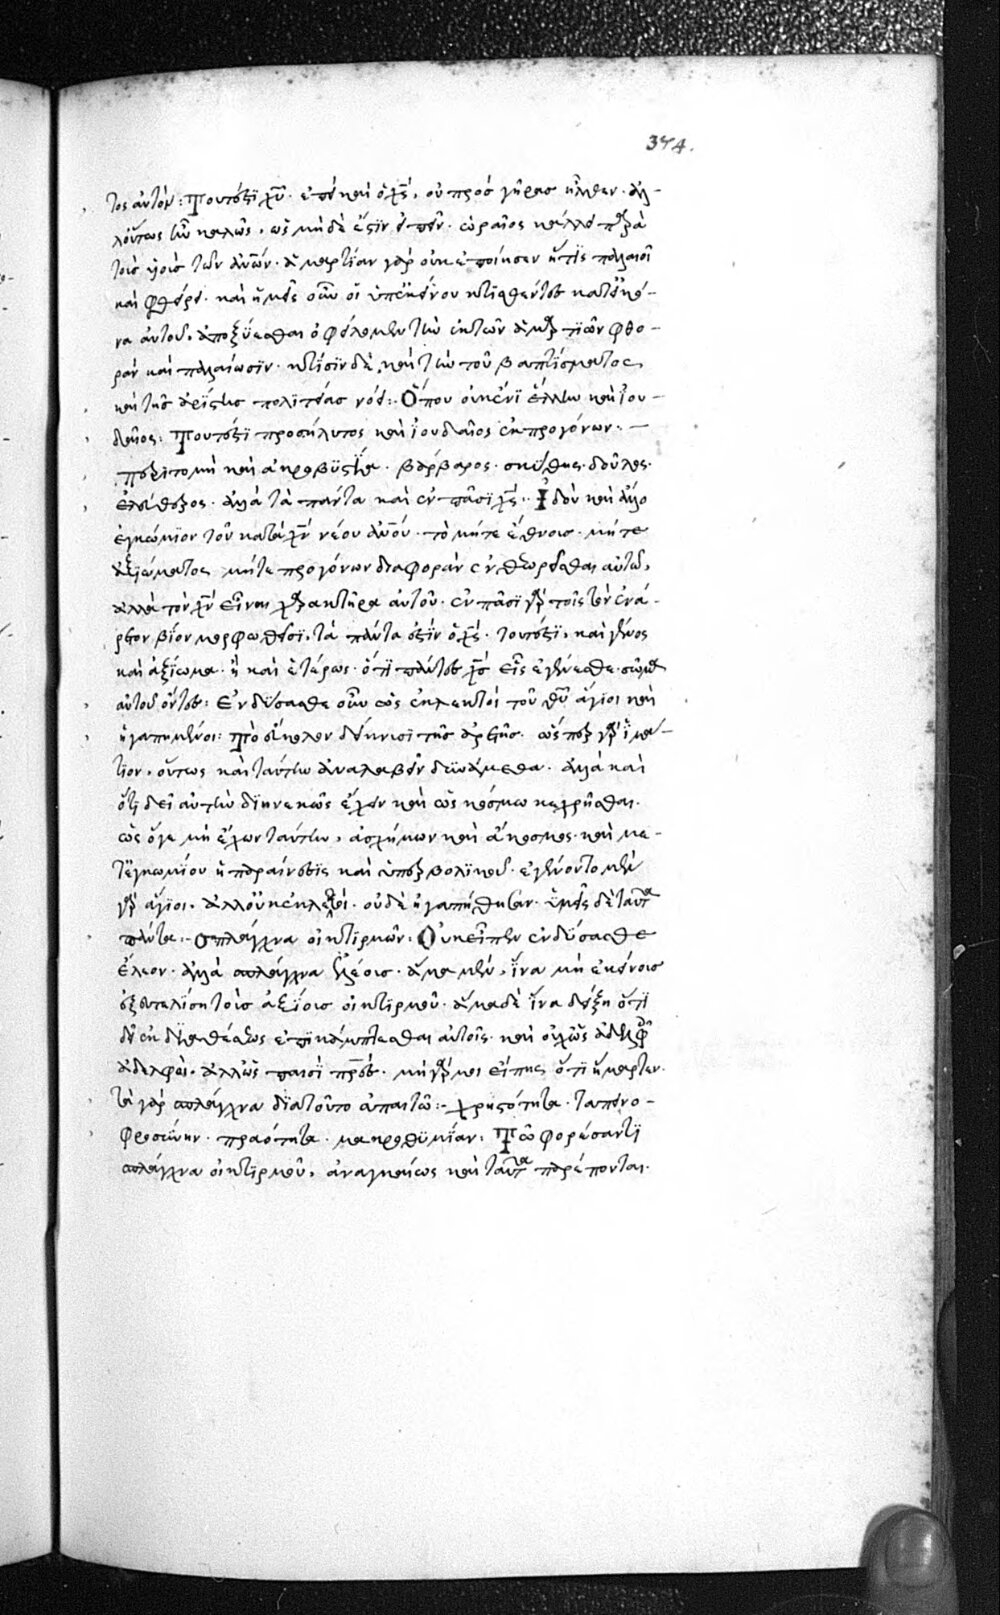 374.
τος αὐτόν: Τουτέστι χῡ· ἐπεὶ καὶ ὁ χς̄, οὐ πρὸς γῆρας ἦλθεν· ἀλ-
λ' οὕτως ἦν καλῶς, ὡς μηδὲ ἔστιν εἰπεῖν· ὡραῖος κάλλει παρὰ
τοὺς υἱοὺς τῶν ἀνων· ἁμαρτίαν γὰρ οὐκ ἐποίησεν ἥτις παλαιοῖ
καὶ φθείρει· καὶ ἡμεῖς οὖν οἱ ὑπ' ἐκείνου κτισθέντες κατ' εἰκό-
να αὐτοῦ, ἀποξύεσθαι ὀφείλομεν τὴν ἐκ τῶν ἁμαρτιῶν φθο-
ρὰν καὶ παλαίωσιν· κτίσιν δὲ καὶ τὴν τοῦ βαπτίσματος
καὶ τῆς ἀρίστης πολιτείας νόει: Ὅπου οὐκ ἔνι ἕλλην καὶ ἰου-
δαῖος: Τουτέστι προσήλυτος καὶ ἰουδαῖος ἐκ προγόνων·
περιτομὴ καὶ ἀκροβυστία· βάρβαρος· σκύθης· δοῦλος·
ἐλεύθερος· ἀλλὰ τὰ πάντα καὶ ἐν πᾶσι χς̄: Ἰδοὺ καὶ ἄλλο
ἐγκώμιον τοῦ κατὰ χν̄ νέου ἀνου· τὸ μήτε ἔθνους· μήτε
ἀξιώματος μήτε προγόνων διαφορὰν ἐνθεωρεῖσθαι αὐτῶ,
ἀλλὰ τὸν χν̄ εἶναι χαρακτῆρα αὐτοῦ· ἐν πᾶσι γὰρ τοῖς τὸν ἐνά-
ρετον βίον μορφωθεῖσι, τὰ πάντα ἐστὶν ὁ χς̄· τουτέστι, καὶ γένος
καὶ ἀξίωμα· ἢ καὶ ἑτέρως· ὅτι πάντες χς̄ εἷς ἐγένεσθε· σῶμα
αὐτοῦ ὄντες: Ἐνδύσασθε οὖν ὡς ἐκλεκτοὶ τοῦ θῡ ἅγιοι καὶ
ἠγαπημένοι: Τὸ εὔκολον δείκνυσι τῆς ἀρετῆς· ὥσπερ γὰρ ἱμά-
τιον, οὕτως καὶ ταύτην ἀναλαβεῖν δυνάμεθα· ἀλλὰ καὶ
ὅτι δεῖ αὐτὴν διηνεκῶς ἔχειν καὶ ὡς κόσμω κεχρῆσθαι·
ὡς ὅγε μὴ ἔχων ταύτην, ἀσχήμων καὶ ἄκοσμος· καὶ με-
τ' ἐγκωμίου ἡ παραίνεσις καὶ ὑπερβολικοῦ· ἐγένοντο μὲν
γὰρ ἅγιοι· ἀλλ' οὐκ ἐκλεκτοί· οὐδὲ ἠγαπήθησαν· ὑμεῖς δὲ ταῦτα
πάντα: Σπλάγχνα οἰκτιρμῶν: Οὐκ εἶπεν ἐνδύσασθε
ἔλεον· ἀλλὰ σπλάγχνα ἐλέους· ἅμα μὲν, ἵνα μὴ ἐκείνους
ἐξευτελίση τοὺς ἀξίους οἰκτιρμοῦ· ἅμα δὲ ἵνα δείξη ὅτι
δεῖ ἐκ διαθέσεως ἐπικάμπτεσθαι αὐτοῖς· καὶ οὐχ ὡς ἀδελφοῖς
ἀδελφοὶ· ἀλλ' ὡς παισὶ πρες̄· μὴ γάρ μοι εἴπης ὅτι ἥμαρτεν·
τὰ γὰρ σπλάγχνα διὰ τοῦτο ἀπαιτῶ:- χρηστότητα· ταπεινο-
φροσύνην· πραότητα· μακροθυμίαν: Τῶ φορέσαντι
σπλάγχνα οἰκτιρμοῦ, ἀναγκαίως καὶ ταῦτα παρέπονται·